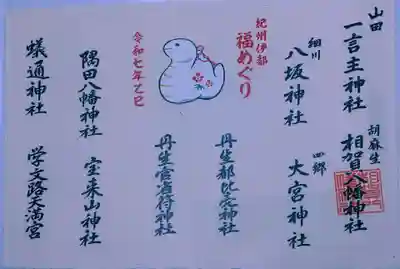 山田
一言主神社
胡麻生
相賀八幡神社
細川
八坂神社
四郷
大宮神社
紀州伊都
福めぐり
丹生都比売神社
令和七年乙巳
丹生官省符神社
隅田八幡神社
宝来山神社
蟻通神社
学文路天満宮